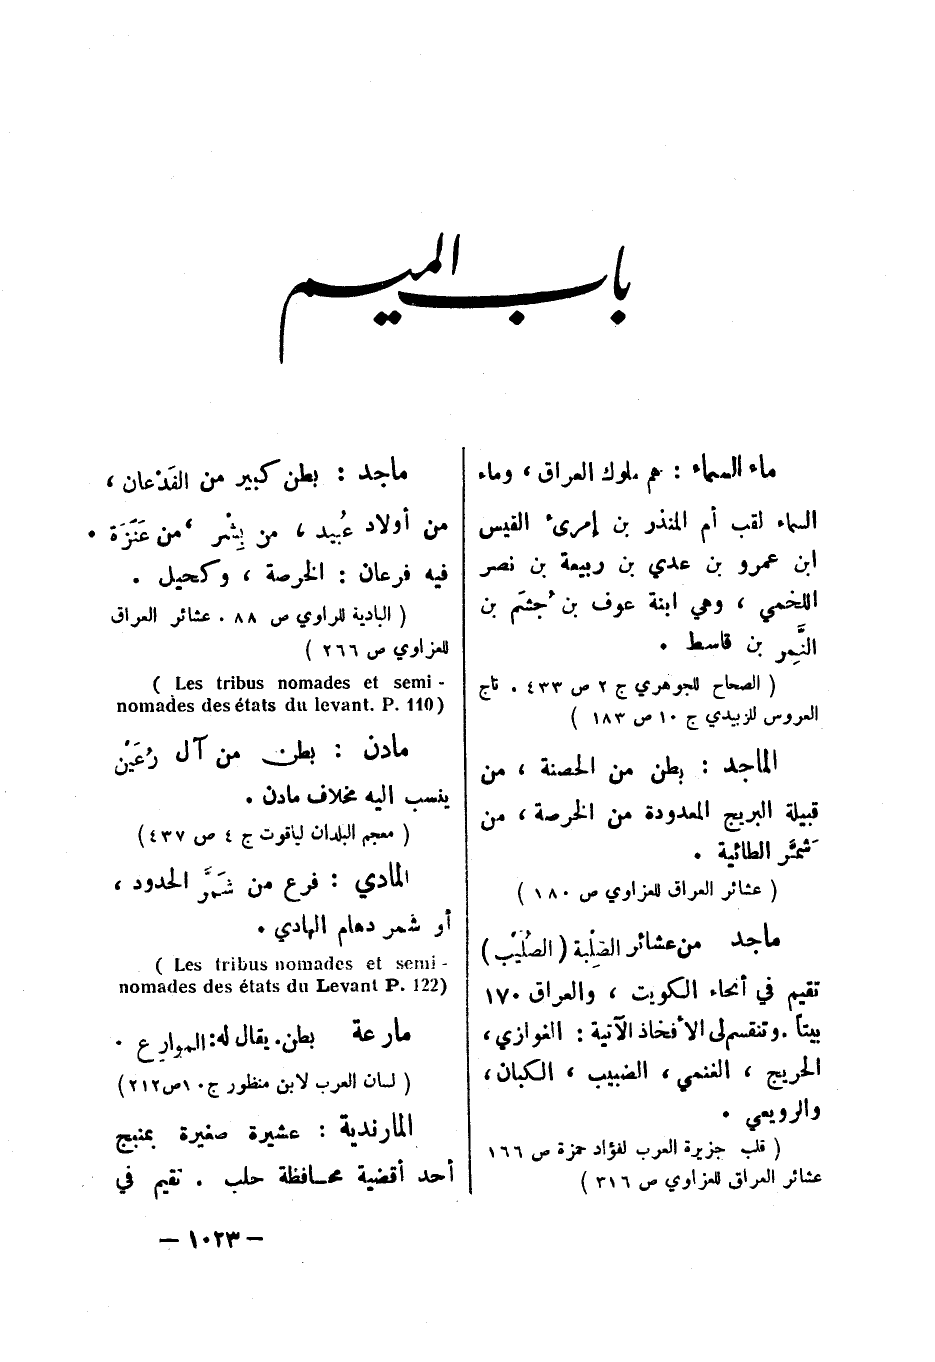 باب الميم
ماء السماء : هم ملوك العراق ، وماء
السماء لقب أم المنذر بن إمرىء القيس
ابن عمرو بن عدي بن ربيعة بن نصر
اللخمي ، وهي ابنة عوف بن جُشَم بن
النَّمِر بن قاسط .
( الصحاح للجوهري ج ٢ ص ٤٣٣ . تاج
العروس للزبيدي ج ١٠ ص ١٨٣ )
الماجد : بطن من الحصنة ، من
قبيلة البريج المعدودة من الخرصة ، من
شَمَّر الطائية .
( عشائر العراق للعزاوي ص ١٨٠ )
ماجد من عشائر الصِّلْبة ( الصُّلَيْب )
تقيم في أنحاء الكويت ، والعراق ١٧٠
بيتاً . وتنقسم لى الأفخاذ الآتية : الفوازي ،
الحريج ، الغنمي ، الضبيب ، الكبان ،
والرويعي .
( قلب جزيرة العرب لفؤاد حمزة ص ١٦٦
عشائر العراق للعزاوي ص ٣١٦ )
ماجد : بطن كبير من الفَدْعان ،
من أولاد عُبيد ، من بِشْر ، من عَنَزَة .
فيه فرعان : الخرصة ، وكحيل .
( البادية للراوي ص ٨٨ . عشائر العراق
للعزاوي ص ٢٦٦ )
( Les tribus nomades et semi -
nomades des états du levant. P. 110)
مادن : بطن من آل رُعَيْن
ينسب اليه مخلاف مادن .
( معجم البلدان لياقوت ج ٤ ص ٤٣٧ )
المادي : فرع من شَمَّر الحدود ،
أو شمر دهام الهادي .
( Les tribus nomades et semi -
nomades des états du Levant P. 122)
مارعة بطن . يقال له : الموارع .
( لسان العرب لابن منظور ج ١٠ ص ٢١٢ )
المارندية : عشيرة صغيرة بمنبج
أحد أقضية محافظة حلب . تقيم في
— ١٠٢٣ —